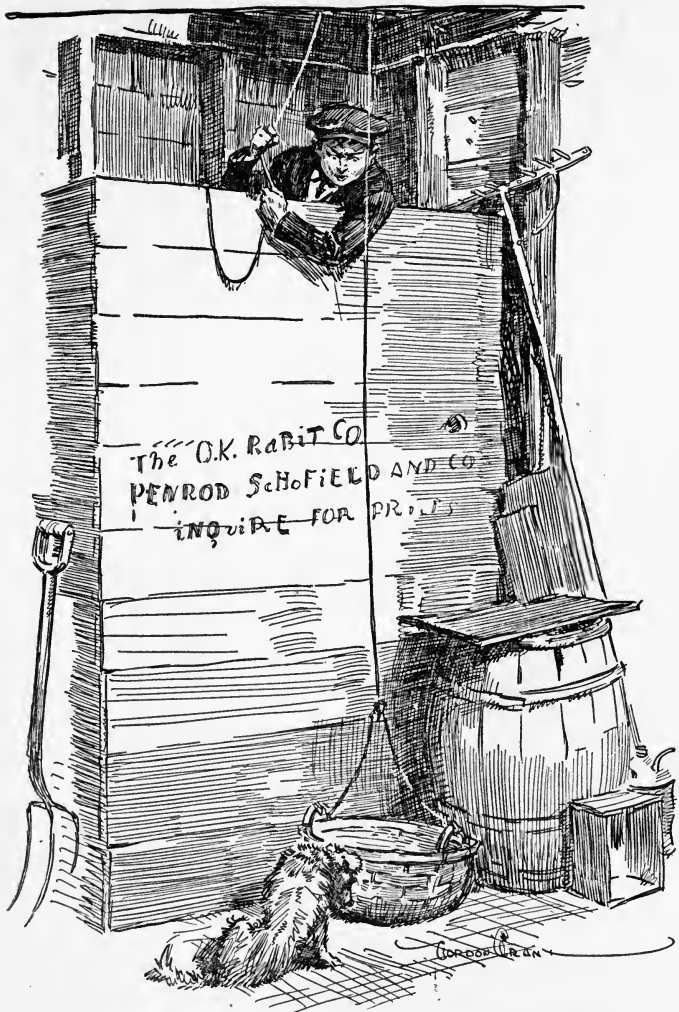 The O.K. RaBiT CO
PENROD ScHoFiELD AND CO
iNQuiRE FOR
GORDON GRANT